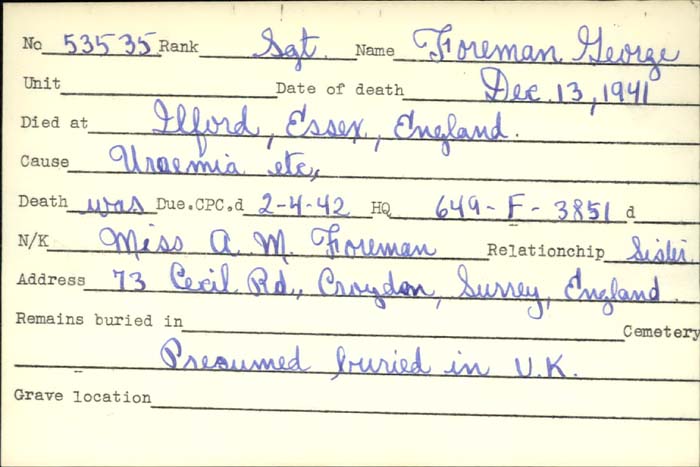 No 53535 Rank Sgt. Name Foreman George
Unit Date of death Dec. 13, 1941
Died at Ilford, Essex, England.
Cause Uraemia etc,
Death was Due.CPC.d 2-4-42 HQ 649-F-3851 d
N/K Miss A. M. Foreman Relationchip Sister
Address 73 Cecil Rd., Croydon, Surrey, England.
Remains buried in Cemetery
Presumed buried in U.K.
Grave location